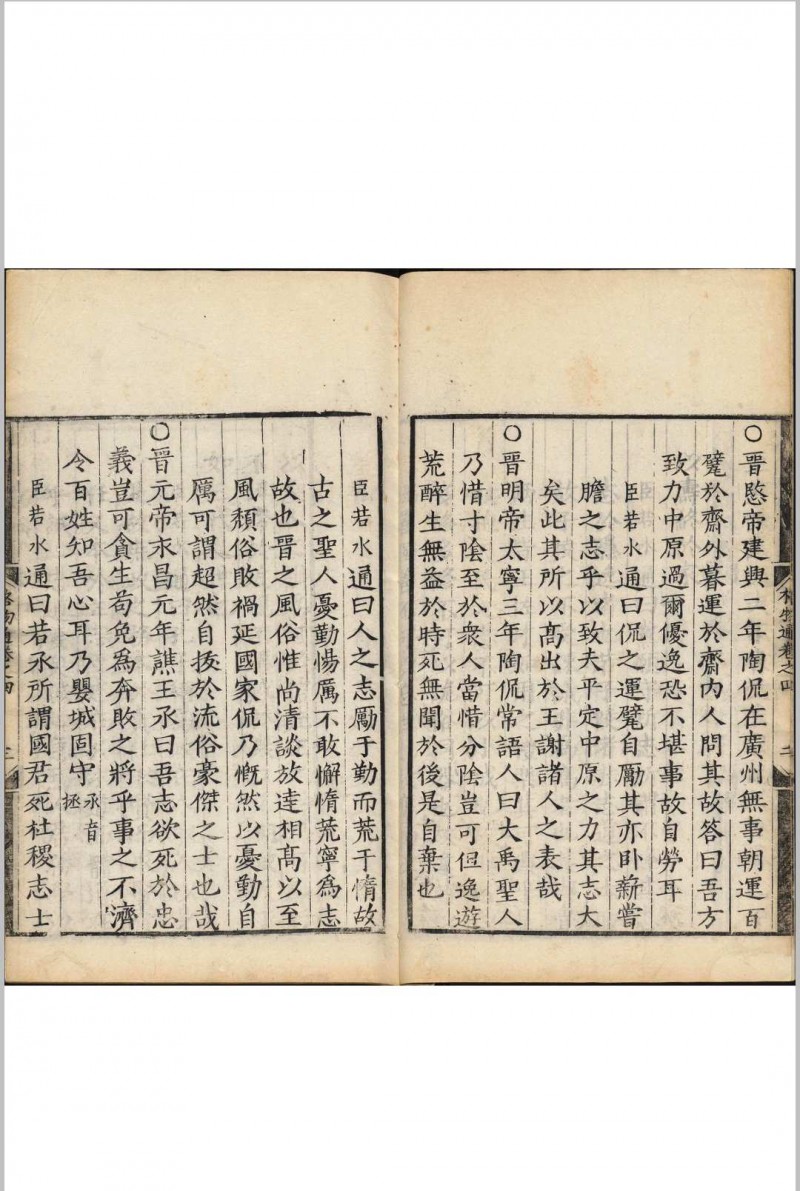 格物通卷之四
二
○晉愍帝建興二年陶侃在廣州無事朝運百
甓於齋外暮運於齋內人問其故答曰吾方
致力中原過爾優逸恐不堪事故自勞耳
臣若水通曰侃之運甓自勵其亦卧薪嘗
膽之志乎以致夫平定中原之力其志大
矣此其所以高出於王謝諸人之表哉
○晉明帝太寧三年陶侃常語人曰大禹聖人
乃惜寸陰至於衆人當惜分陰豈可但逸遊
荒醉生無益於時死無聞於後是自棄也
臣若水通曰人之志勵于勤而荒于惰故
古之聖人憂勤惕厲不敢懈惰荒寧為志
故也晉之風俗惟尚清談放達相高以至
風頽俗敗禍延國家侃乃慨然以憂勤自
厲可謂超然自拔於流俗豪傑之士也哉
○晉元帝永昌元年譙王氶曰吾志欲死於忠
義豈可貪生苟免為奔敗之將乎事之不濟
令百姓知吾心耳乃嬰城固守氶音拯
臣若水通曰若氶所謂國君死社稷志士
格物通卷之四
三